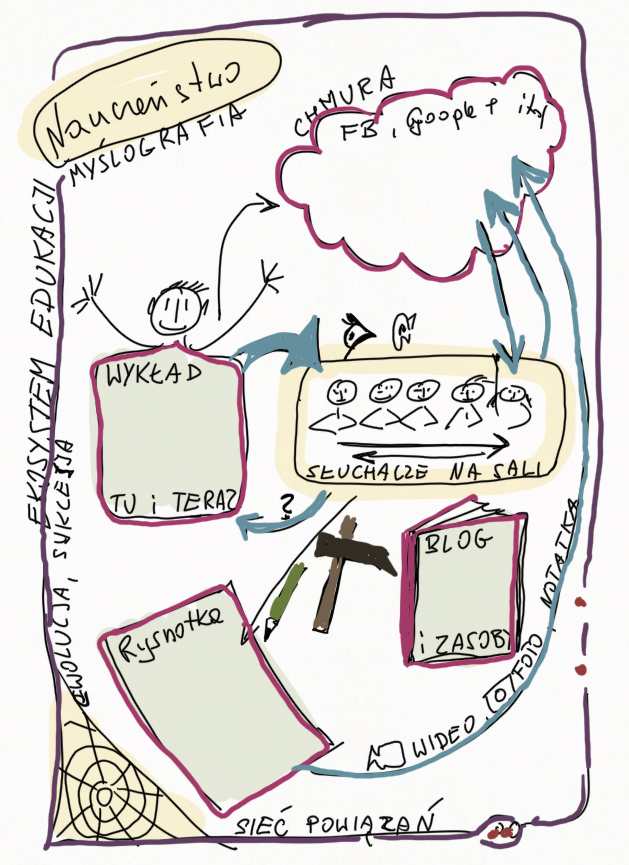 Nauczeństwo
MYŚLOGRAFIA
CHMURA
FB, Google + itp
EKOSYSTEM EDUKACJI
EWOLUCJA, SUKCESJA
WYKŁAD
TU i TERAZ
SŁUCHACZE NA SALI
?
BLOG
i ZASOBY
Rysnotka
WIDEO, FOTO, NOTATKA
SIEĆ POWIĄZAŃ